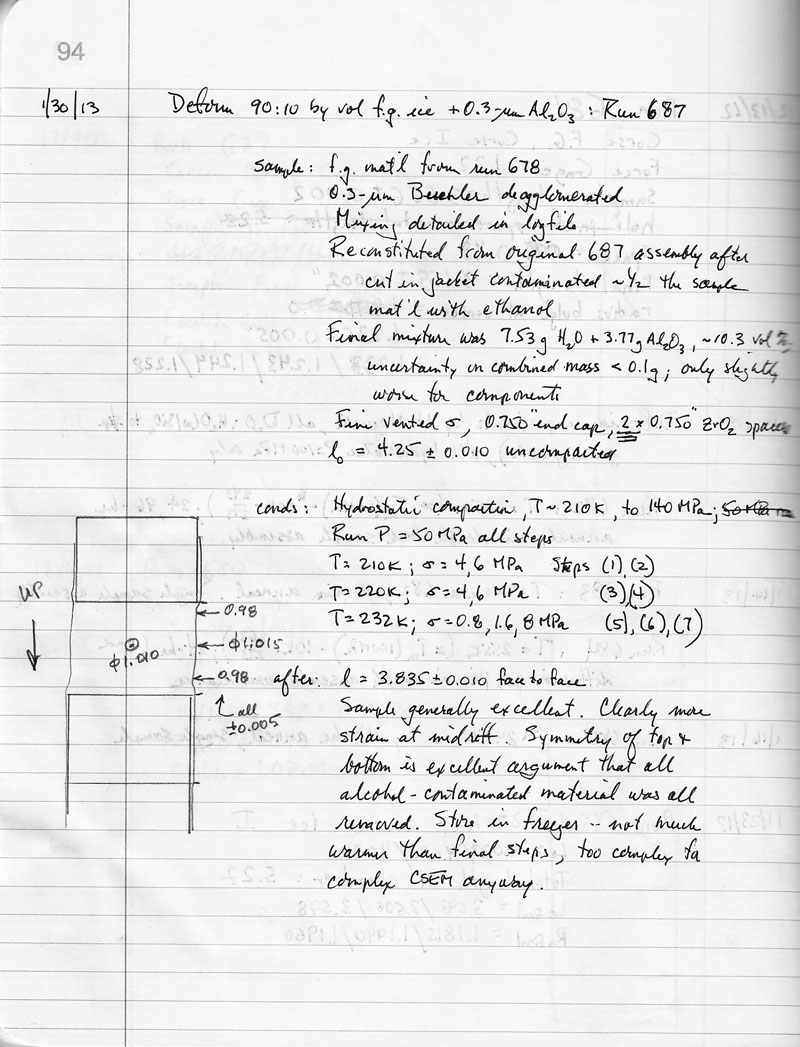 94
1/30/13 Deform 90:10 by vol f.g. ice + 0.3-μm Al₂O₃ : Run 687
sample: f.g. mat'l from run 678
0.3-μm Buehler deagglomerated
Mixing detailed in logfile
Reconstituted from original 687 assembly after
cut in jacket contaminated ~1/2 the sample
mat'l with ethanol
Final mixture was 7.53g H₂O + 3.77g Al₂O₃, ~10.3 vol %
uncertainty on combined mass < 0.1g; only slightly
worse for components
Fine vented σ, 0.750" end cap, 2 x 0.750" ZrO₂ spacers
l₀ = 4.25 ± 0.010 uncompacted
conds: Hydrostatic compaction, T~210K, to 140 MPa; 50 MPa
Run P = 50 MPa all steps
T = 210K; σ = 4,6 MPa Steps (1),(2)
T = 220K; σ = 4,6 MPa (3),(4)
T = 232K; σ = 0.8, 1.6, 8 MPa (5),(6),(7)
UP
0.98
ϕ1.015
ϕ1.010
0.98
all
±0.005
after: l = 3.835 ± 0.010 face to face
Sample generally excellent. Clearly more
strain at midriff. Symmetry of top &
bottom is excellent argument that all
alcohol-contaminated material was all
removed. Store in freezer -- not much
warmer than final steps, too complex fa
complex CSEM anyway.